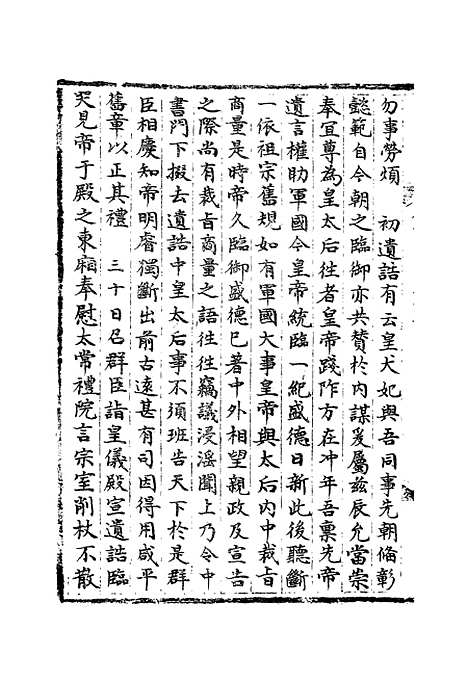 勿事勞煩　初遺誥有云皇大妃與吾同事先朝備彰
懿範自今朝之臨御亦共贊於內謀爰屬茲辰允當崇
奉宜尊為皇太后徃者皇帝踐阼方在冲年吾禀先帝
遺言權助軍國今皇帝統臨一紀盛德日新此後聽斷
一依祖宗舊規如有軍國大事皇帝與太后内中裁㫖
商量是時帝久臨御盛德已著中外相望親政及宣告
之際尚有裁㫖商量之語徃徃竊議浸滛聞上乃令中
書門下掇去遺誥中皇太后事不須班告天下於是群
臣相慶知帝明睿獨斷出前古遠甚有司因得用咸平
舊章以正其禮　三十日召群臣詣皇儀殿宣遺誥臨
哭見帝于殿之東廂奉慰太常禮院言宗室削杖不散